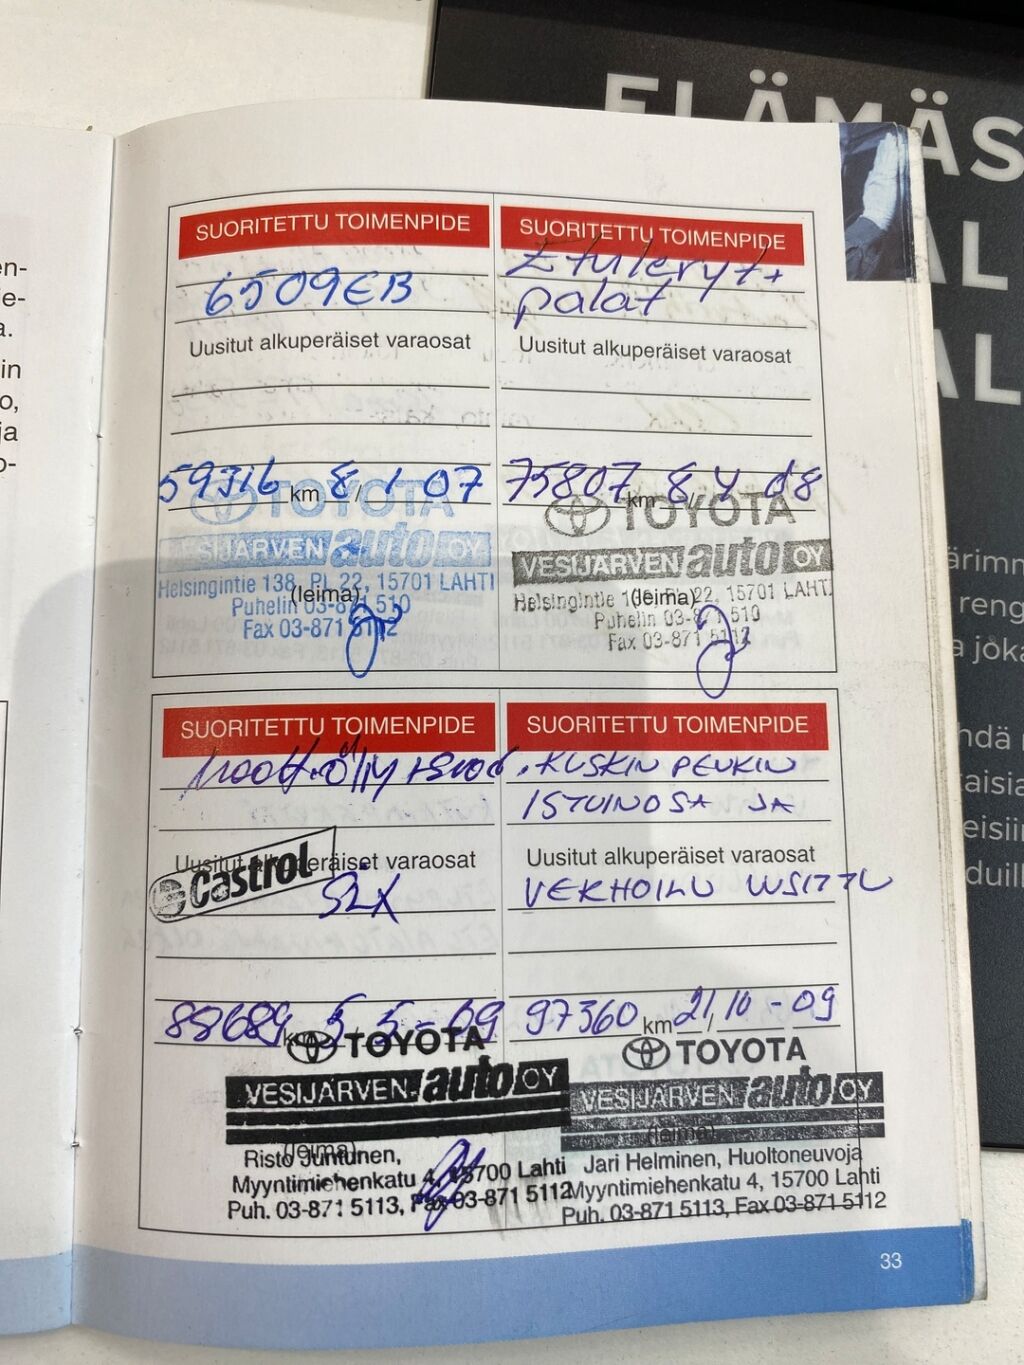 ELÄMÄS
AL
AL
en-
ie-
a.
in
o,
ja
o-
SUORITETTU TOIMENPIDE
6509EB
Uusitut alkuperäiset varaosat
59316 km 8/1 07
TOYOTA
VESIJÄRVEN auto OY
Helsingintie 138, PL 22, 15701 LAHTI
(leima)
Puhelin 03-871 510
Fax 03-871 5112
SUORITETTU TOIMENPIDE
Etulevyt+
palat
Uusitut alkuperäiset varaosat
75807 km 8/4 08
TOYOTA
VESIJÄRVEN auto OY
Helsingintie 138, PL 22, 15701 LAHTI
(leima)
Puhelin 03-871 510
Fax 03-871 5112
SUORITETTU TOIMENPIDE
Uusitut alkuperäiset varaosat
Castrol
SLX
88689 km 5/5-09
TOYOTA
VESIJÄRVEN auto OY
(leima)
Risto Juntunen,
Myyntimiehenkatu 4, 15700 Lahti
Puh. 03-871 5113, Fax 03-871 5112
SUORITETTU TOIMENPIDE
KUSKIN PENKIN
ISTUINOSA JA
Uusitut alkuperäiset varaosat
VERHOILU UUSITTU
97360 km 21/10-09
TOYOTA
VESIJÄRVEN auto OY
(leima)
Jari Helminen, Huoltoneuvoja
Myyntimiehenkatu 4, 15700 Lahti
Puh. 03-871 5113, Fax 03-871 5112
33
ärimm
reng
a joka
hdä
aisia
eisiin
duill